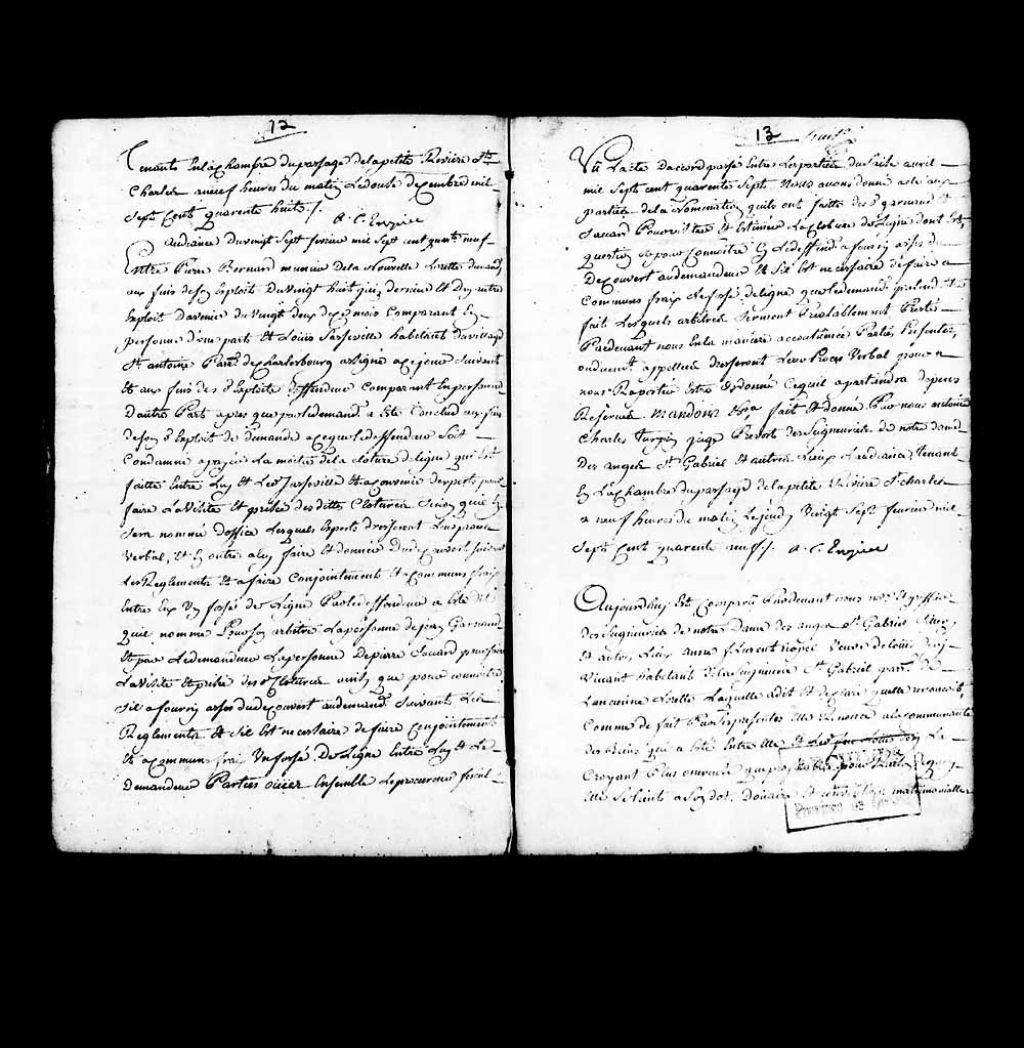 12
Tenante En la Chambre du passage de la petite Rivière St
Charles a neuf heures du matin Le douze decembre mil
Sept Cent quarente huit /.
A. C. Enzice
Audiance du vingt Sept fevrier mil Sept cent qua.te neuf
Entre Pierre Bernard meunier De la Nouvelle Lorette demand.
aux fins de son Exploit Du vingt huit dernier Et Du autre
Exploit d'avenir du vingt deux de ce mois Comparant En
personne d'une part Et Louis Parseville habitant du village
St antoine Par.se de charlesbourg assigné a ce jour Suivant
Et aux fins des d. Exploits deffendeur Comparant En personne
D'autre Part apres que par le demand. a Eté Conclud aux fins
de son d. Exploit de demande a ce que le deffendeur Soit
Condamné a payer La moitié de la cloture de ligne qui Est
faitte Entre Luy Et Led Parseville Et a convenir d'experts pour
faire La Visite Et prisée des dittes Clotures Sinon qu'il En
Sera nommé d'office Lesquels Experts dresseront Leur procès
Verbal, Et En outre a luy faire Et donner Du decouvert suivant
Les Reglements Et a faire Conjointement Et a Communs fraix
Entre Eux Un fossé de Ligne Par le deffendeur a Eté dit
qu'il nomme Pour son arbitre La personne de jean Garnaud
Et par Le demandeur La personne De pierre Savard pour faire
La Visite Et prisée des d. Clotures ainsy que pour connoitre
S'il a fourny assés du decouvert au demand. Suivant Les
Reglements Et s'il Est necessaire de faire Conjointement
Et a communs fraix Un fossé De Ligne Entre Luy Et Le
Demandeur Parties ouies Ensemble Le procureur fiscal
13
Vû L'acte D'accord passé Entre Les parties du Seize avril
mil Sept cent quarente Sept Nous avons donné acte aux
parties de la Nomination qu'ils ont faitte des d. garnaud Et
Savard Pour Visiter Et Estimer La Cloture de Ligne dont Est
question Et pour Connoitre Sy Le deffend. a fourny assés du
Decouvert au demandeur Et S'il Est necessaire de faire a
Communs fraix Le fossé de ligne que le demand. pretend Etre
fait Lesquels arbitres Seront Prealablement Serment
Pardevant nous En la maniere accoutumée Parties Presentes,
ou duement appellées dresseront Leur Procès Verbal pour a
nous Raporter Estre ordonné Ce qu'il apartiendra depens
Reservés Mandons &ra fait Et donné Par nous
Charles Turpin juge Prevost des Seigneuries de notre dame
Des anges St Gabriel Et autres Lieux L'audiance Tenante
En La Chambre du passage de la petite Riviere St charles
a neuf heures du matin Le jeudy Vingt Sept fevrier mil
Sept Cent quarente neuf /. A. C. Enzice
Aujourd'huy Est Comparu Pardevant nous Not. Et greffier
des Seigneuries de notre Dame des anges St Gabriel Sillery
Et autres Lieux anne Laurent Veuve de Louis
Vivant habitant De la Seigneurie St Gabriel par. de
L'ancienne Lorette Laquelle a dit Et declaré qu'elle renonceoit,
Comme de fait Par Ces presentes Elle Renonce a la communauté
des Biens qui a Eté Entre Elle Et Led feu Louis La
Croyant Plus onereuse que profitable pour
Elle Se tenir a Son dot, Douaire Et matrimonialles
Province de Québec